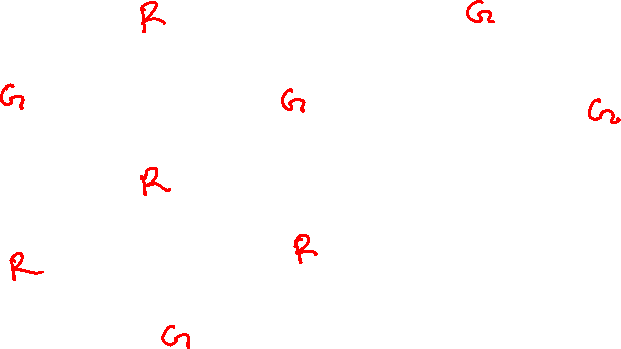 R G
G G G
R
R R
G